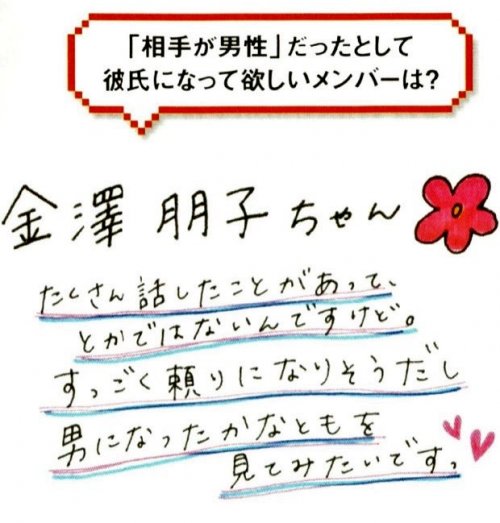 「相手が男性」だったとして
彼氏になって欲しいメンバーは?
金澤朋子ちゃん
たくさん話したことがあって、
とかではないんですけど。
すっごく頼りになりそうだし
男になったかなともを
見てみたいです。